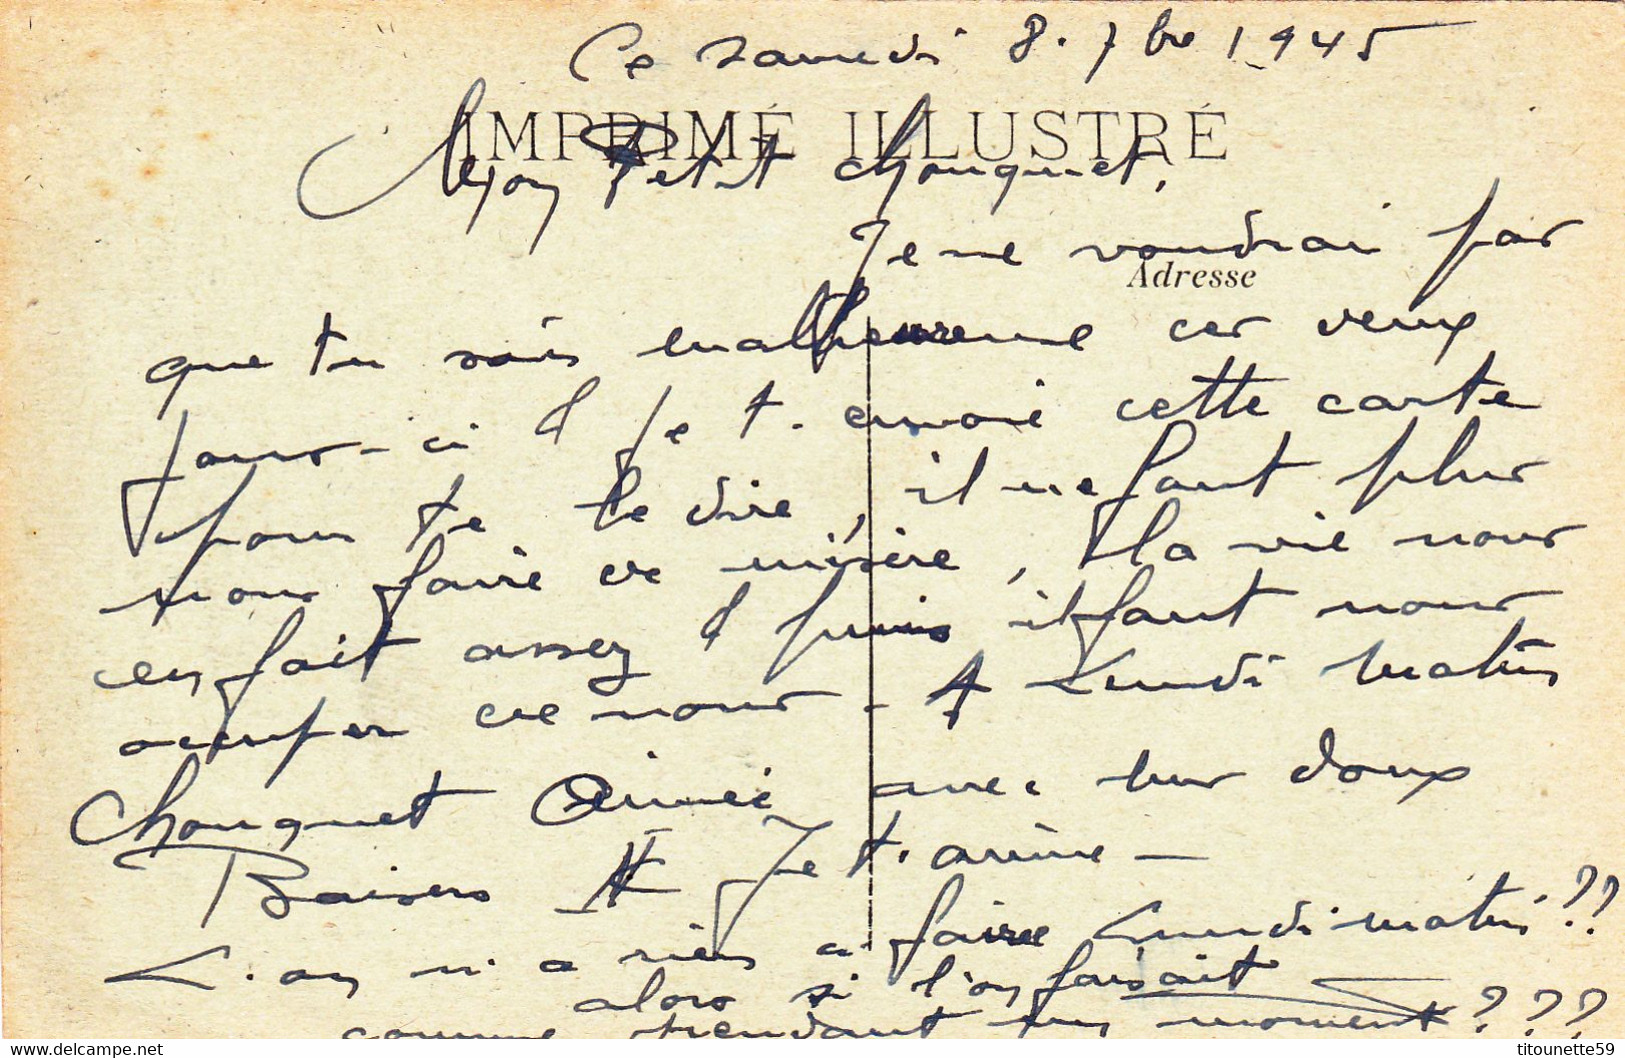 Ce samedi 8. 7bre 1945
IMPRIMÉ ILLUSTRÉ
Mon Petit chouquet,
Je ne voudrai pas
Adresse
que tu sois malheureuse ces deux
jours-ci & je t. envoie cette carte
pour te le dire, il ne faut plus
nous faire de misère, la vie nous
en fait assez & puis il faut nous
occuper de nous - A Lundi matin
Chouquet Aimée avec mes doux
Baisers Je t. aime -
L. on n. a rien a faire Lundi matin ??
alors si l'on faisait
comme pendant un moment ???
titounette59